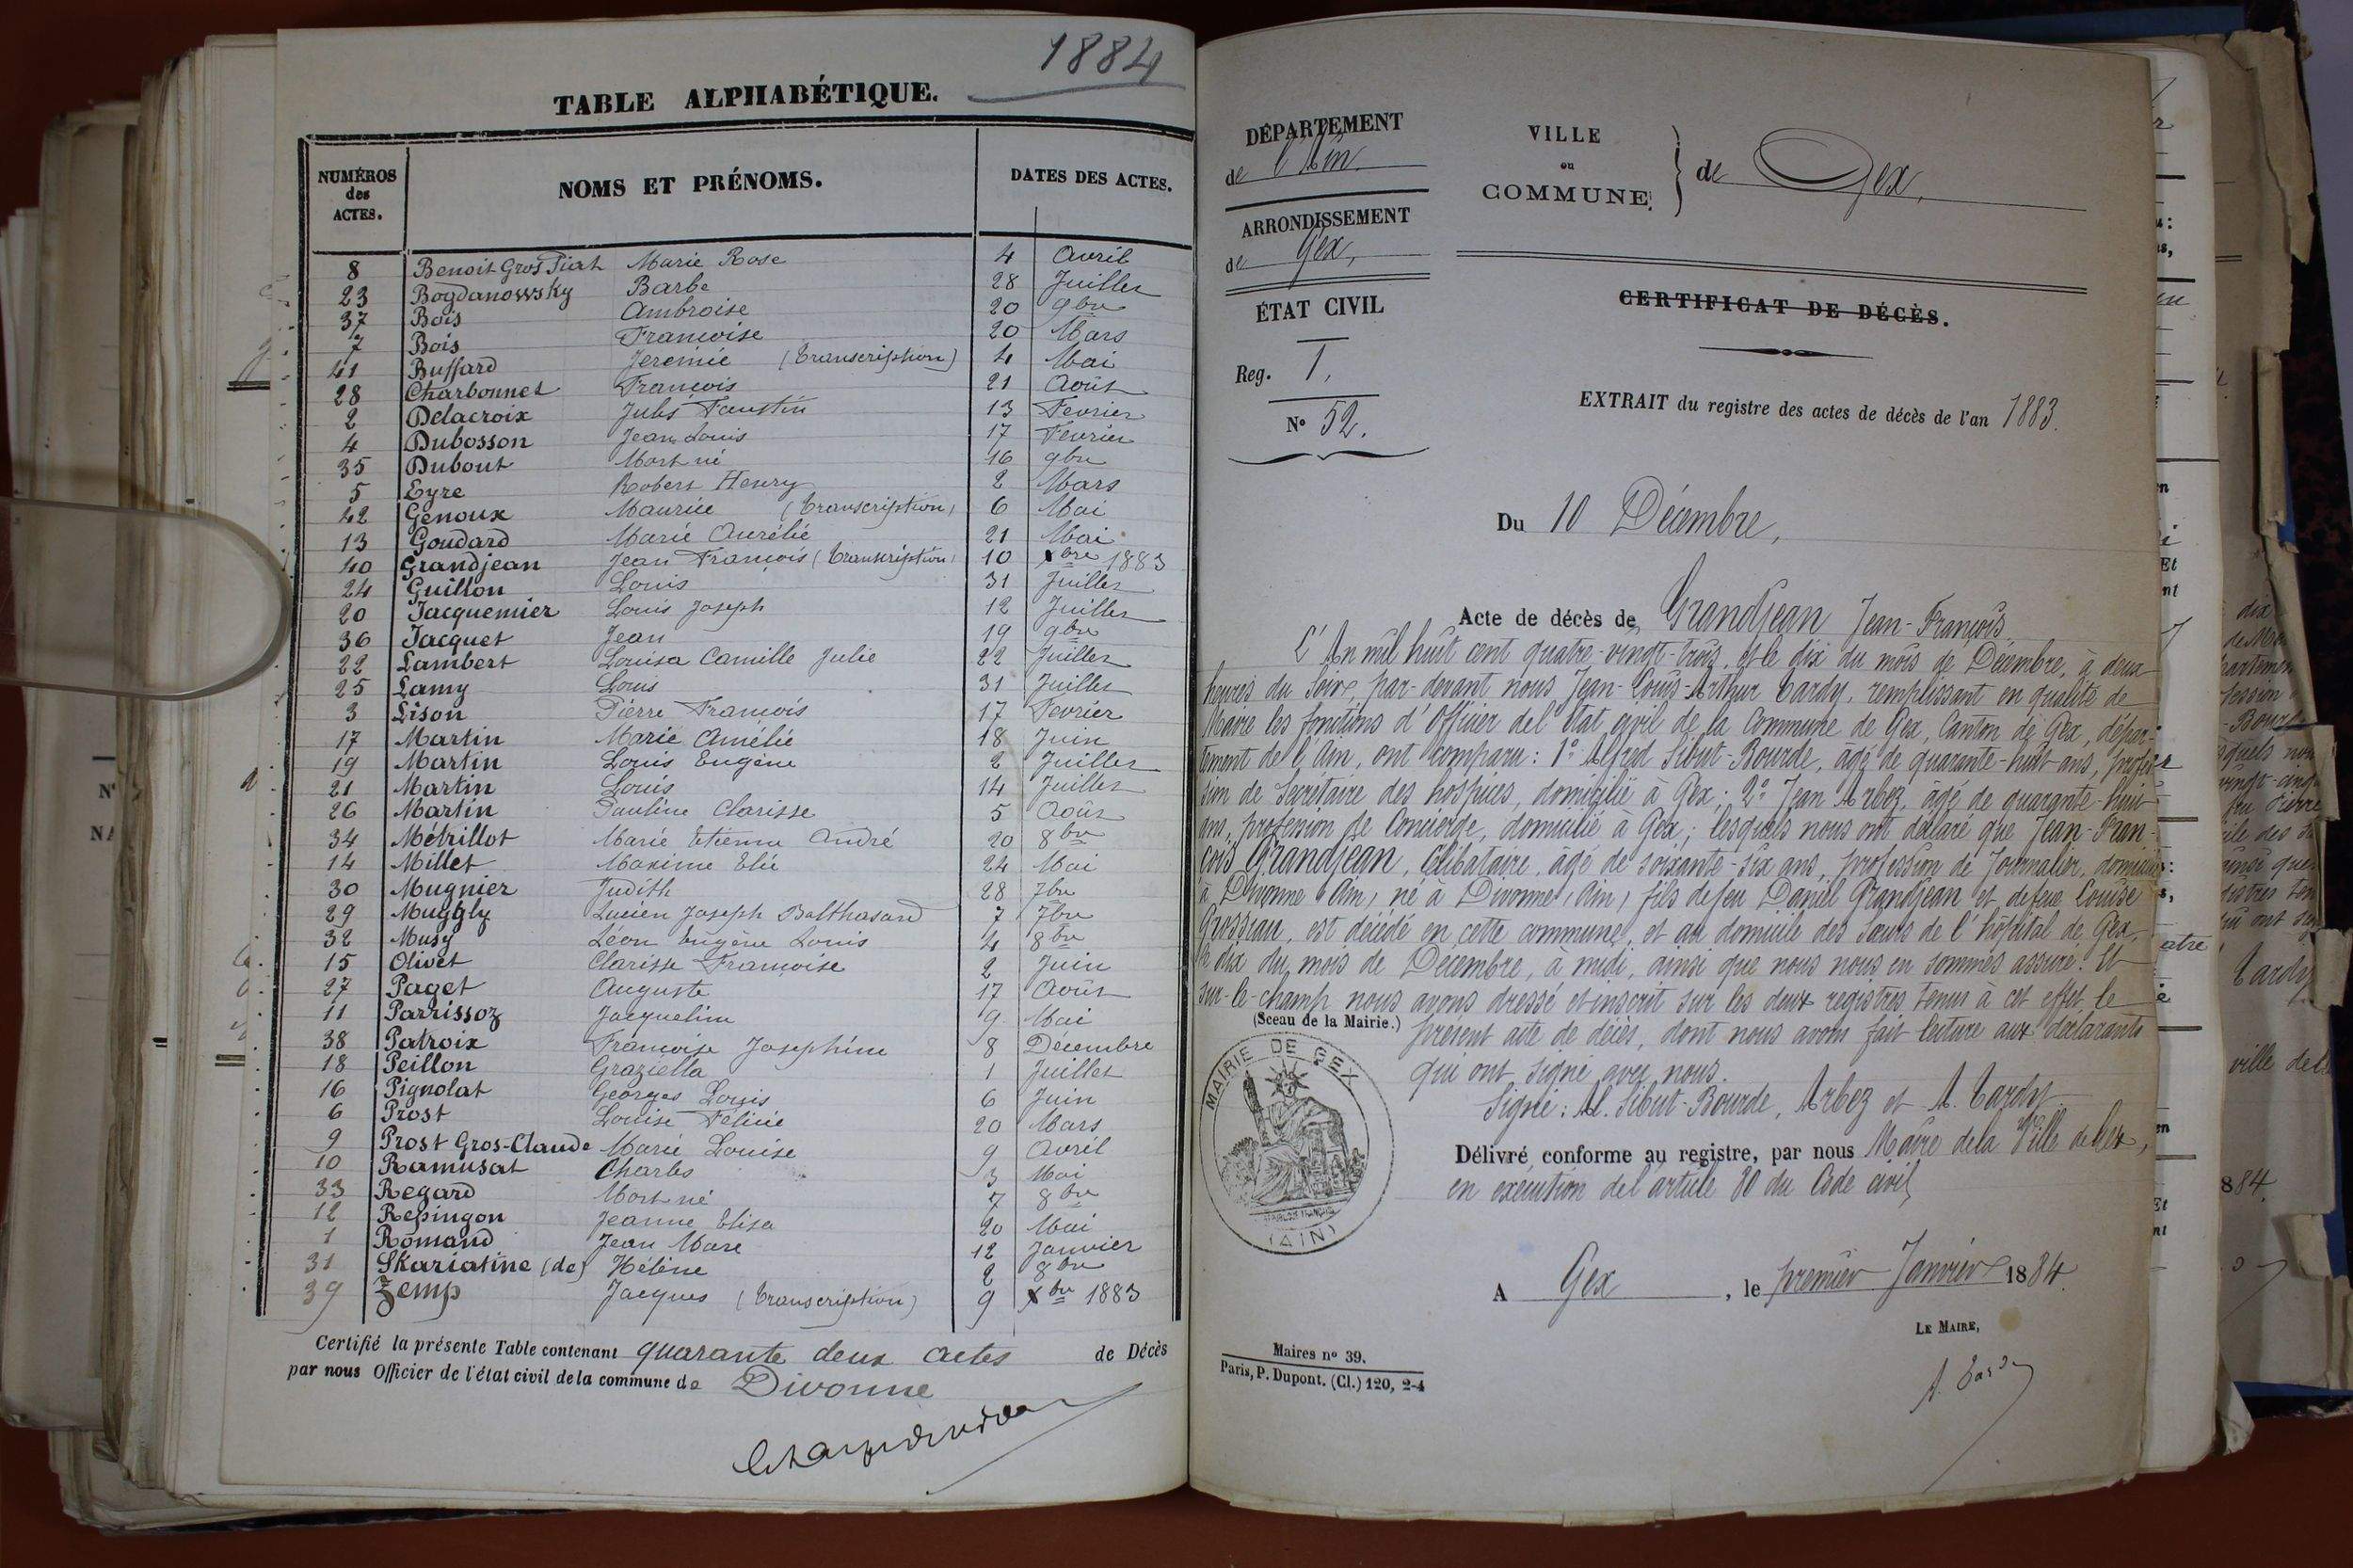 1884
TABLE ALPHABÉTIQUE.
NUMÉROS des ACTES. NOMS ET PRÉNOMS. DATES DES ACTES.
8 Benoit Gros Piat Marie Rose 4 Avril
23 Bogdanowsky Barbe 28 Juillet
37 Bois Ambroise 20 9bre
7 Bois Françoise 20 Mars
41 Buffard Jeremie (transcription) 4 Mai
28 Charbonnet François 21 Août
2 Delacroix Jules Faustin 13 Fevrier
4 Dubosson Jean Louis 17 Fevrier
35 Dubout Mort né 16 9bre
5 Eyre Robert Henry 2 Mars
42 Genoux Maurice (transcription) 6 Mai
13 Goudard Marie Aurélie 21 Mai
40 Grandjean Jean François (transcription) 10 Xbre 1883
24 Guillon Louis 31 Juillet
20 Jacquemier Louis Joseph 12 Juillet
36 Jacquet Jean 19 9bre
22 Lambert Louisa Camille Julie 22 Juillet
25 Lamy Louis 31 Juillet
3 Lison Pierre François 17 Fevrier
17 Martin Marie Amélie 18 Juin
19 Martin Louis Eugène 2 Juillet
21 Martin Louis 14 Juillet
26 Martin Pauline Clarisse 5 Août
34 Métrillot Marie Etienne André 20 8bre
14 Millet Maxime Elie 24 Mai
30 Mugnier Judith 28 7bre
29 Muggly Lucien Joseph Balthasard 7 7bre
32 Musy Léon Eugène Louis 4 8bre
15 Olivet Clarisse Françoise 2 Juin
27 Paget Auguste 17 Août
11 Parrissoz Jacqueline 9 Mai
38 Patroix Françoise Josephine 8 Decembre
18 Peillon Graziella 1 Juillet
16 Pignolat Georges Louis 6 Juin
6 Prost Louise Féline 20 Mars
9 Prost Gros-Claude Marie Louise 9 Avril
10 Ramusat Charles 3 Mai
33 Regard Mort né 7 8bre
12 Repingon Jeanne Elisa 20 Mai
1 Romand Jean Marc 12 Janvier
31 Skariatine (de) Hélène 2 8bre
39 Zemp Jacques (transcription) 9 Xbre 1883
Certifié la présente Table contenant quarante deux actes de Décès
par nous Officier de l'état civil de la commune de Divonne
DÉPARTEMENT
de l'Ain.
ARRONDISSEMENT
de Gex,
ÉTAT CIVIL
Reg. 1,
N° 52.
VILLE
ou
COMMUNE
de Gex,
CERTIFICAT DE DÉCÈS.
EXTRAIT du registre des actes de décès de l'an 1883.
Du 10 Décembre,
Acte de décès de Grandjean Jean-François
L'An mil huit cent quatre-vingt-trois, et le dix du mois de Décembre, à deux
heures du soir, par-devant nous Jean-Louis-Arthur Tardy, remplissant en qualité de
Maire les fonctions d'Officier de l'Etat civil de la Commune de Gex, Canton de Gex, dépar-
tement de l'Ain, ont comparu: 1° Alfred Sibut-Bourde, âgé de quarante-huit ans, profes-
sion de Secrétaire des hospices, domicilié à Gex; 2° Jean Arbez, âgé de quarante-huit
ans, profession de Concierge, domicilié à Gex; lesquels nous ont déclaré que Jean-Fran-
çois Grandjean, Célibataire, âgé de soixante-six ans, profession de Journalier, domicilié
à Divonne (Ain) né à Divonne (Ain) fils de feu Daniel Grandjean et de feue Louise
Grossean, est décédé en cette commune, et au domicile des Sœurs de l'hôpital de Gex,
le dix du mois de Décembre, à midi, ainsi que nous nous en sommes assuré. Et
sur-le-champ nous avons dressé et inscrit sur les deux registres tenus à cet effet le
(Sceau de la Mairie.) présent acte de décès, dont nous avons fait lecture aux déclarants
qui ont signé avec nous.
Signé: Al. Sibut-Bourde, Arbez et A. Tardy.
MAIRIE DE GEX
(AIN)
Délivré conforme au registre, par nous Maire de la Ville de Gex,
en exécution de l'article 80 du Code civil,
A Gex, le premier Janvier 1884.
LE MAIRE,
A. Tardy
Maires n° 39.
Paris, P. Dupont. (Cl.) 120, 2-4